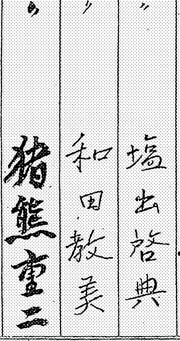 〃 塩出啓典
〃 和田教美
〃 猪熊重二